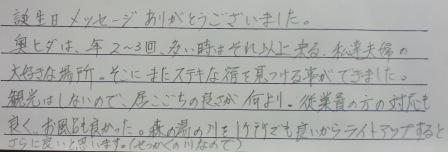 誕生日メッセージありがとうございました。
奥ヒダは、年2〜3回、多い時はそれ以上来る、私達夫婦の
大好きな場所。そこにまたステキな宿を見つける事ができました。
観光はしないので、居ごこちの良さが何より。従業員の方の対応も
良く、お風呂も良かった。森の湯の川を1ヶ所でも良いからライトアップすると
さらに良いと思います。(せっかくの川なので)